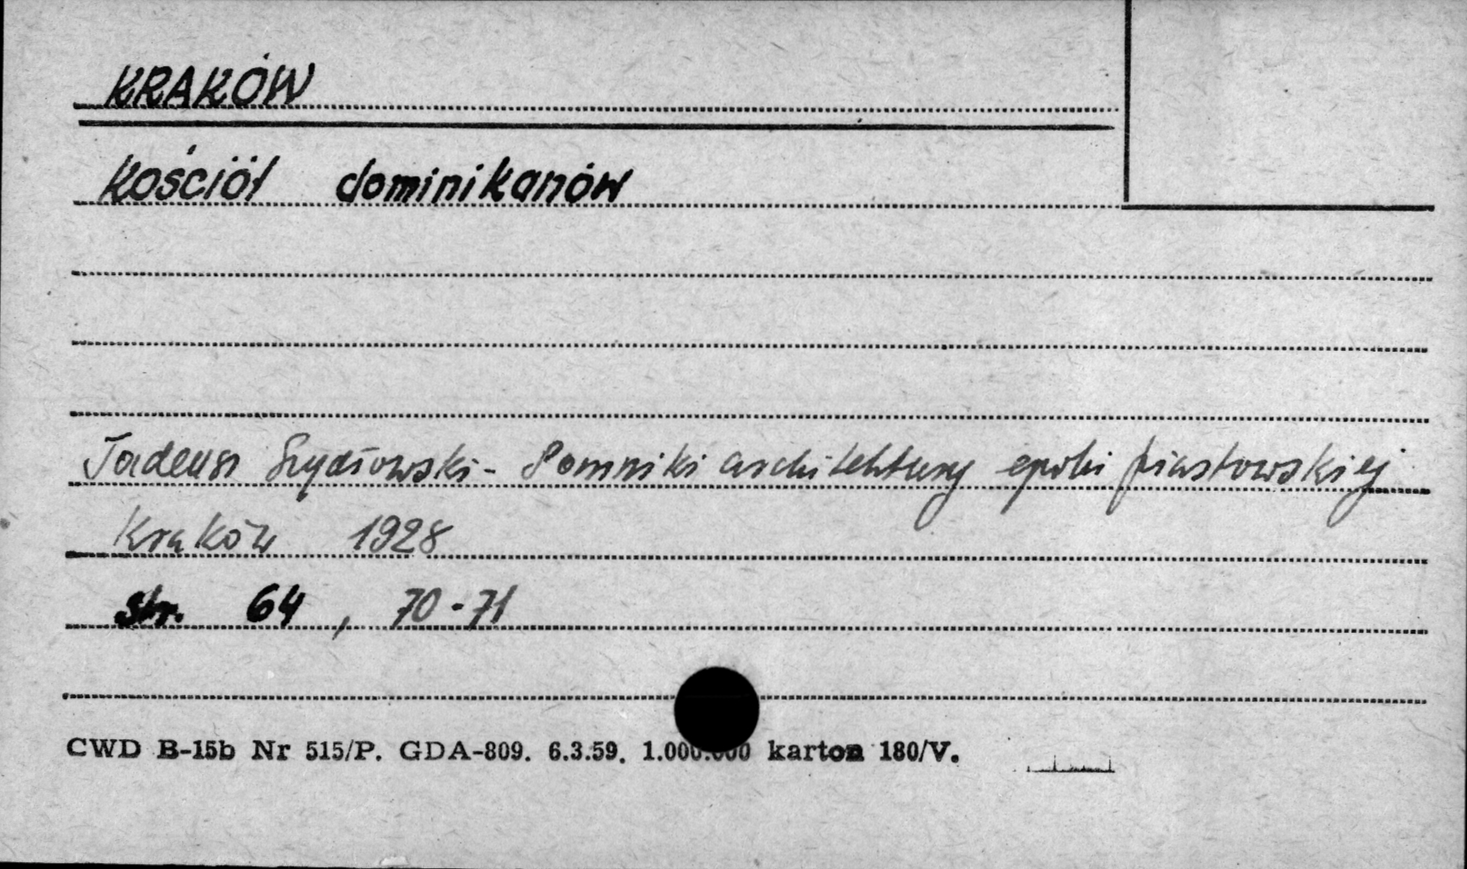 KRAKÓW
Kościół dominikanów
Tadeusz Szydłowski - Pomniki architektury epoki piastowskiej
Kraków 1928
str. 64, 70-71
CWD B-15b Nr 515/P. GDA-809. 6.3.59. 1.000.000 karton 180/V.